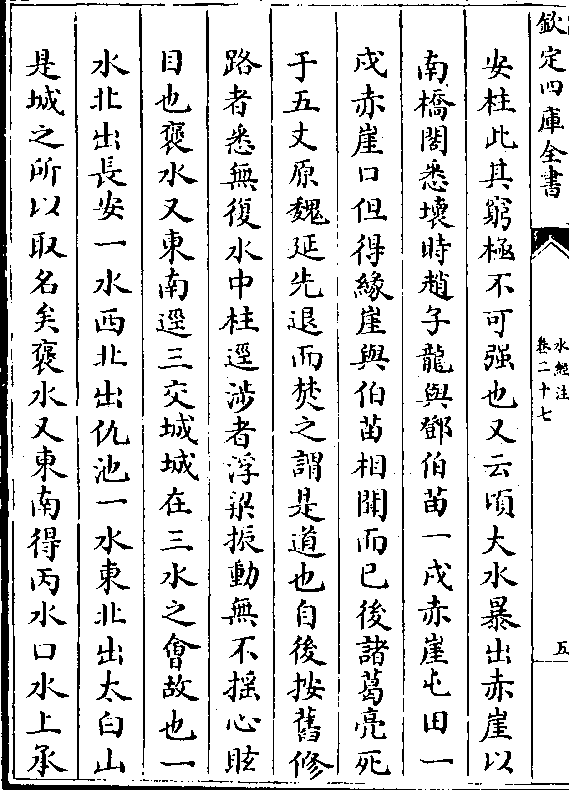 欽定四庫全書
水經注
卷二十七
五
安柱此其窮極不可强也又云頃大水暴出赤崖以
南橋閣悉壞時趙子龍與鄧伯苗一戍赤崖屯田一
戍赤崖口但得緣崖與伯苗相聞而已後諸葛亮死
于五丈原魏延先退而焚之謂是道也自後按舊修
路者悉無復水中柱逕涉者浮梁振動無不搖心眩
目也褒水又東南逕三交城城在三水之會故也一
水北出長安一水西北出仇池一水東北出太白山
是城之所以取名矣褒水又東南得丙水口水上承